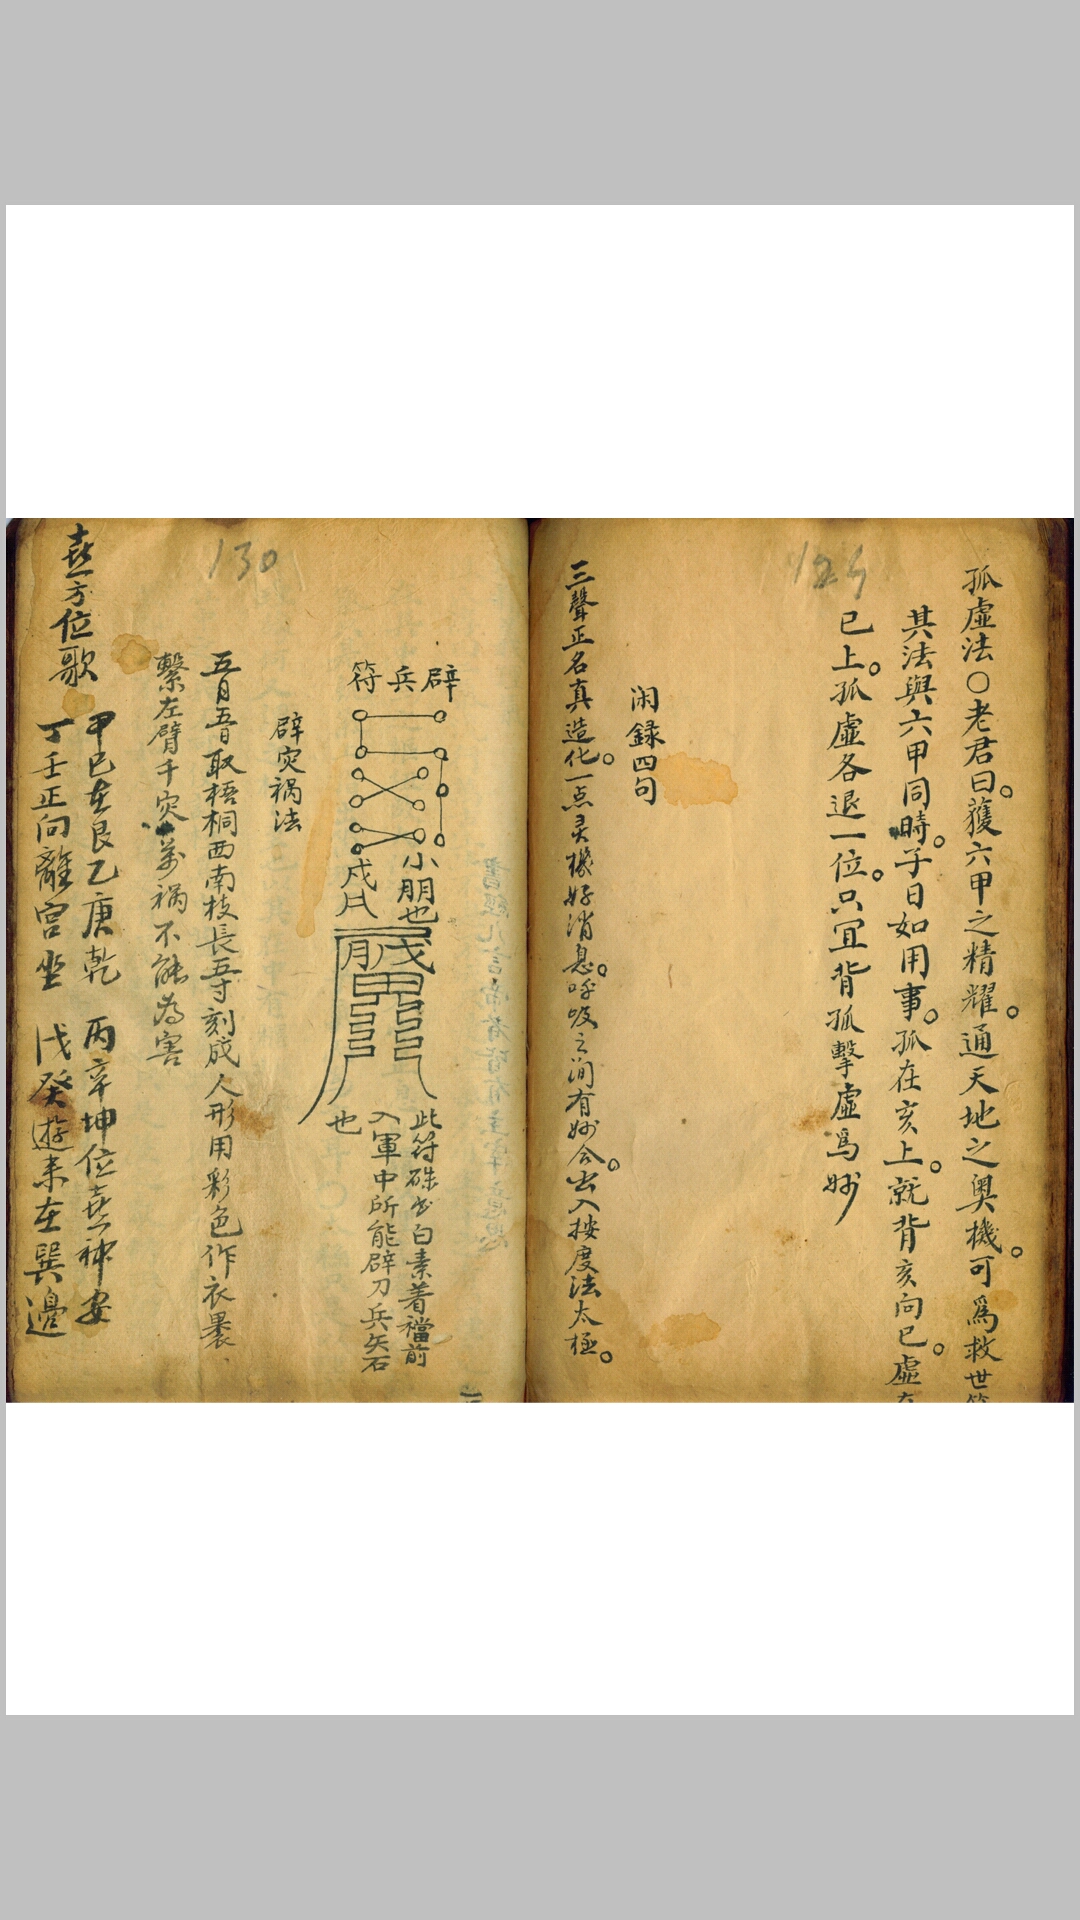 129
孤虛法○老君曰。獲六甲之精耀。通天地之奧機。可爲救世
其法與六甲同時。子日如用事。孤在亥上。就背亥向巳。虛在
已上。孤虛各退一位。只宜背孤擊虛爲妙
闲録四句
三聲正名真造化。一点灵機好消息。呼吸之间有妙合。出入按度法太極。
130
辟兵符
小朋也
戍
此符硃书白素着襠前
入軍中所能辟刀兵矢石
也
辟灾祸法
五月五日取梧桐西南枝長五寸刻成人形用彩色作衣裹、
繫左臂千灾萬祸不能為害
喜方位歌
甲己在艮乙庚乾 丙辛坤位喜神安
丁壬正向離宮坐 戊癸遊来在巽邊